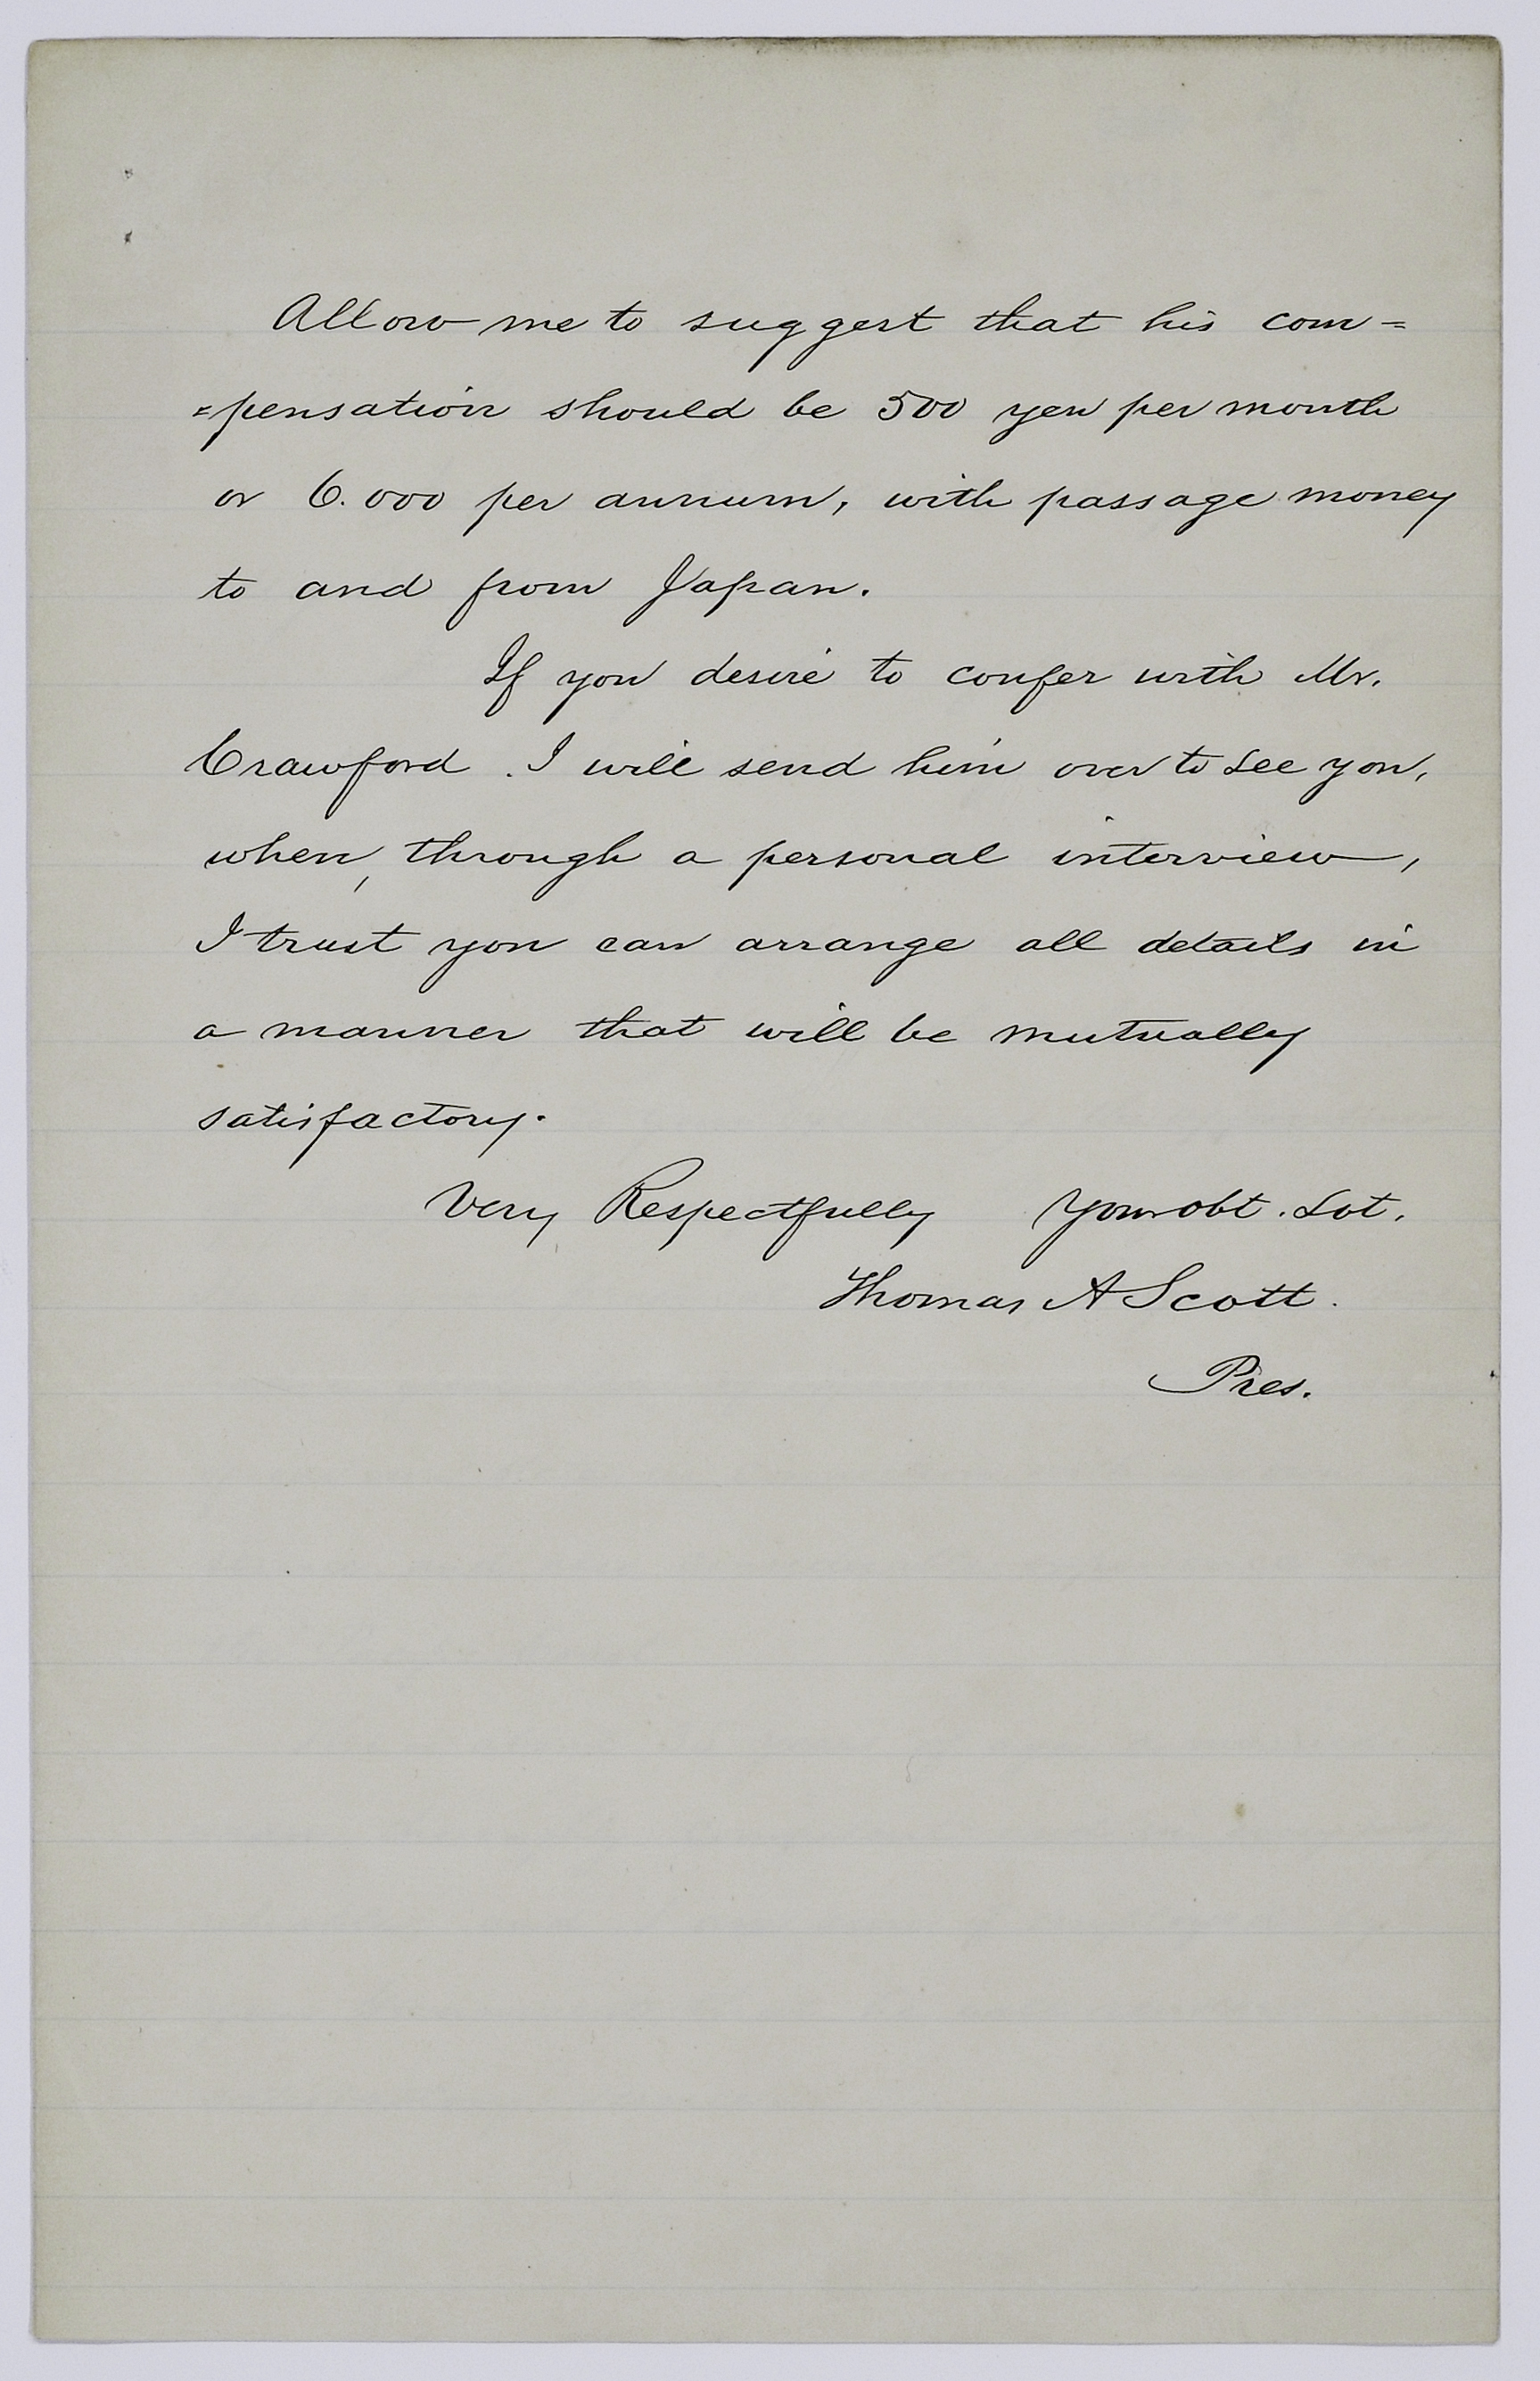 Allow me to suggest that his com=
=pensation should be 500 yen per month
or 6.000 per annum, with passage money
to and from Japan.
If you desire to confer with Mr.
Crawford. I will send him over to see you,
when, through a personal interview,
I trust you can arrange all details in
a manner that will be mutually
satisfactory.
Very Respectfully Your obt. Svt.
Thomas A Scott.
Pres.